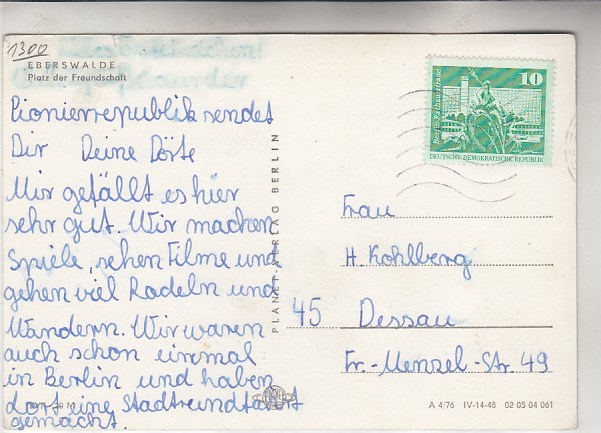 1300
EBERSWALDE
Platz der Freundschaft
Pionierrepublik sendet
Dir Deine Dörte
Mir gefällt es hier
sehr gut. Wir machen
Spiele, sehen Filme und
gehen viel Radeln und
Wandern. Wir waren
auch schon einmal
in Berlin und haben
dort eine Stadtrundfahrt
gemacht.
PLANET-VERLAG BERLIN
10
DEUTSCHE DEMOKRATISCHE REPUBLIK
Frau
H. Kohlberg
45 Dessau
Fr.-Menzel-Str. 49
A 4/76 IV-14-48 02 05 04 061